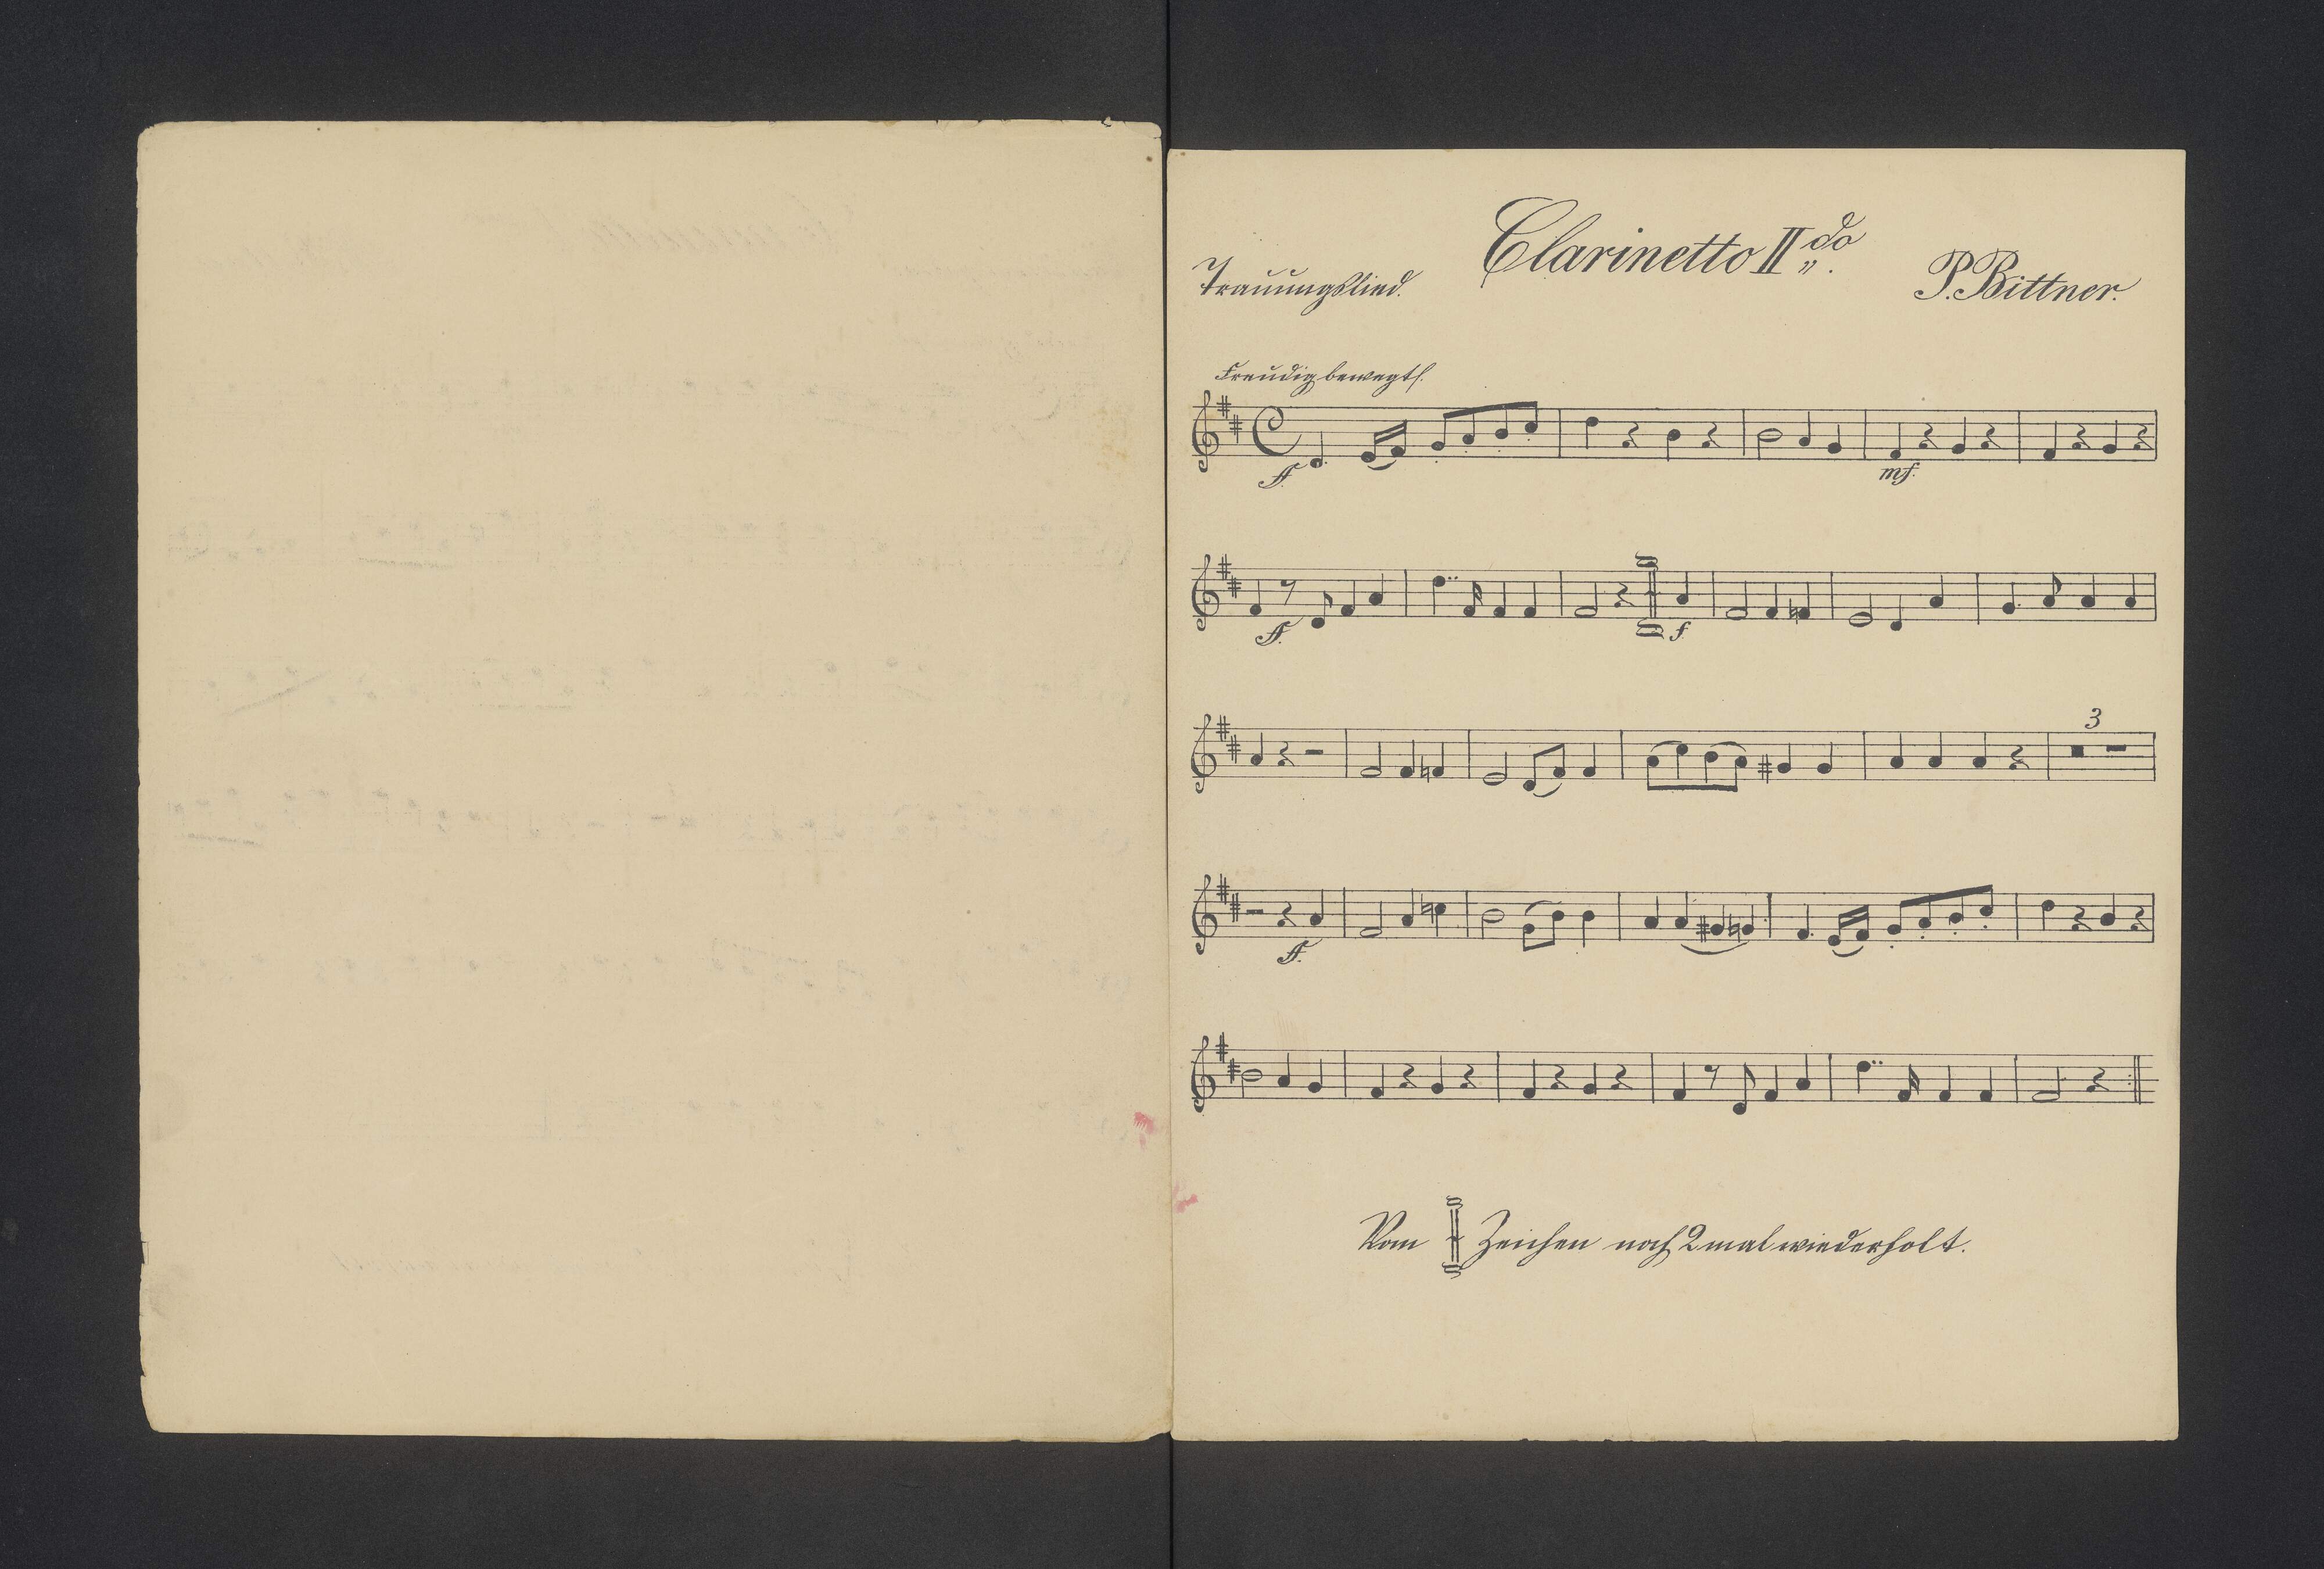 Clarinetto II do
Trauungslied.
P. Bittner.
Freudig bewegt.
ff.
mf.
ff.
f
3
ff.
Vom Zeichen noch 2 mal wiederholt.